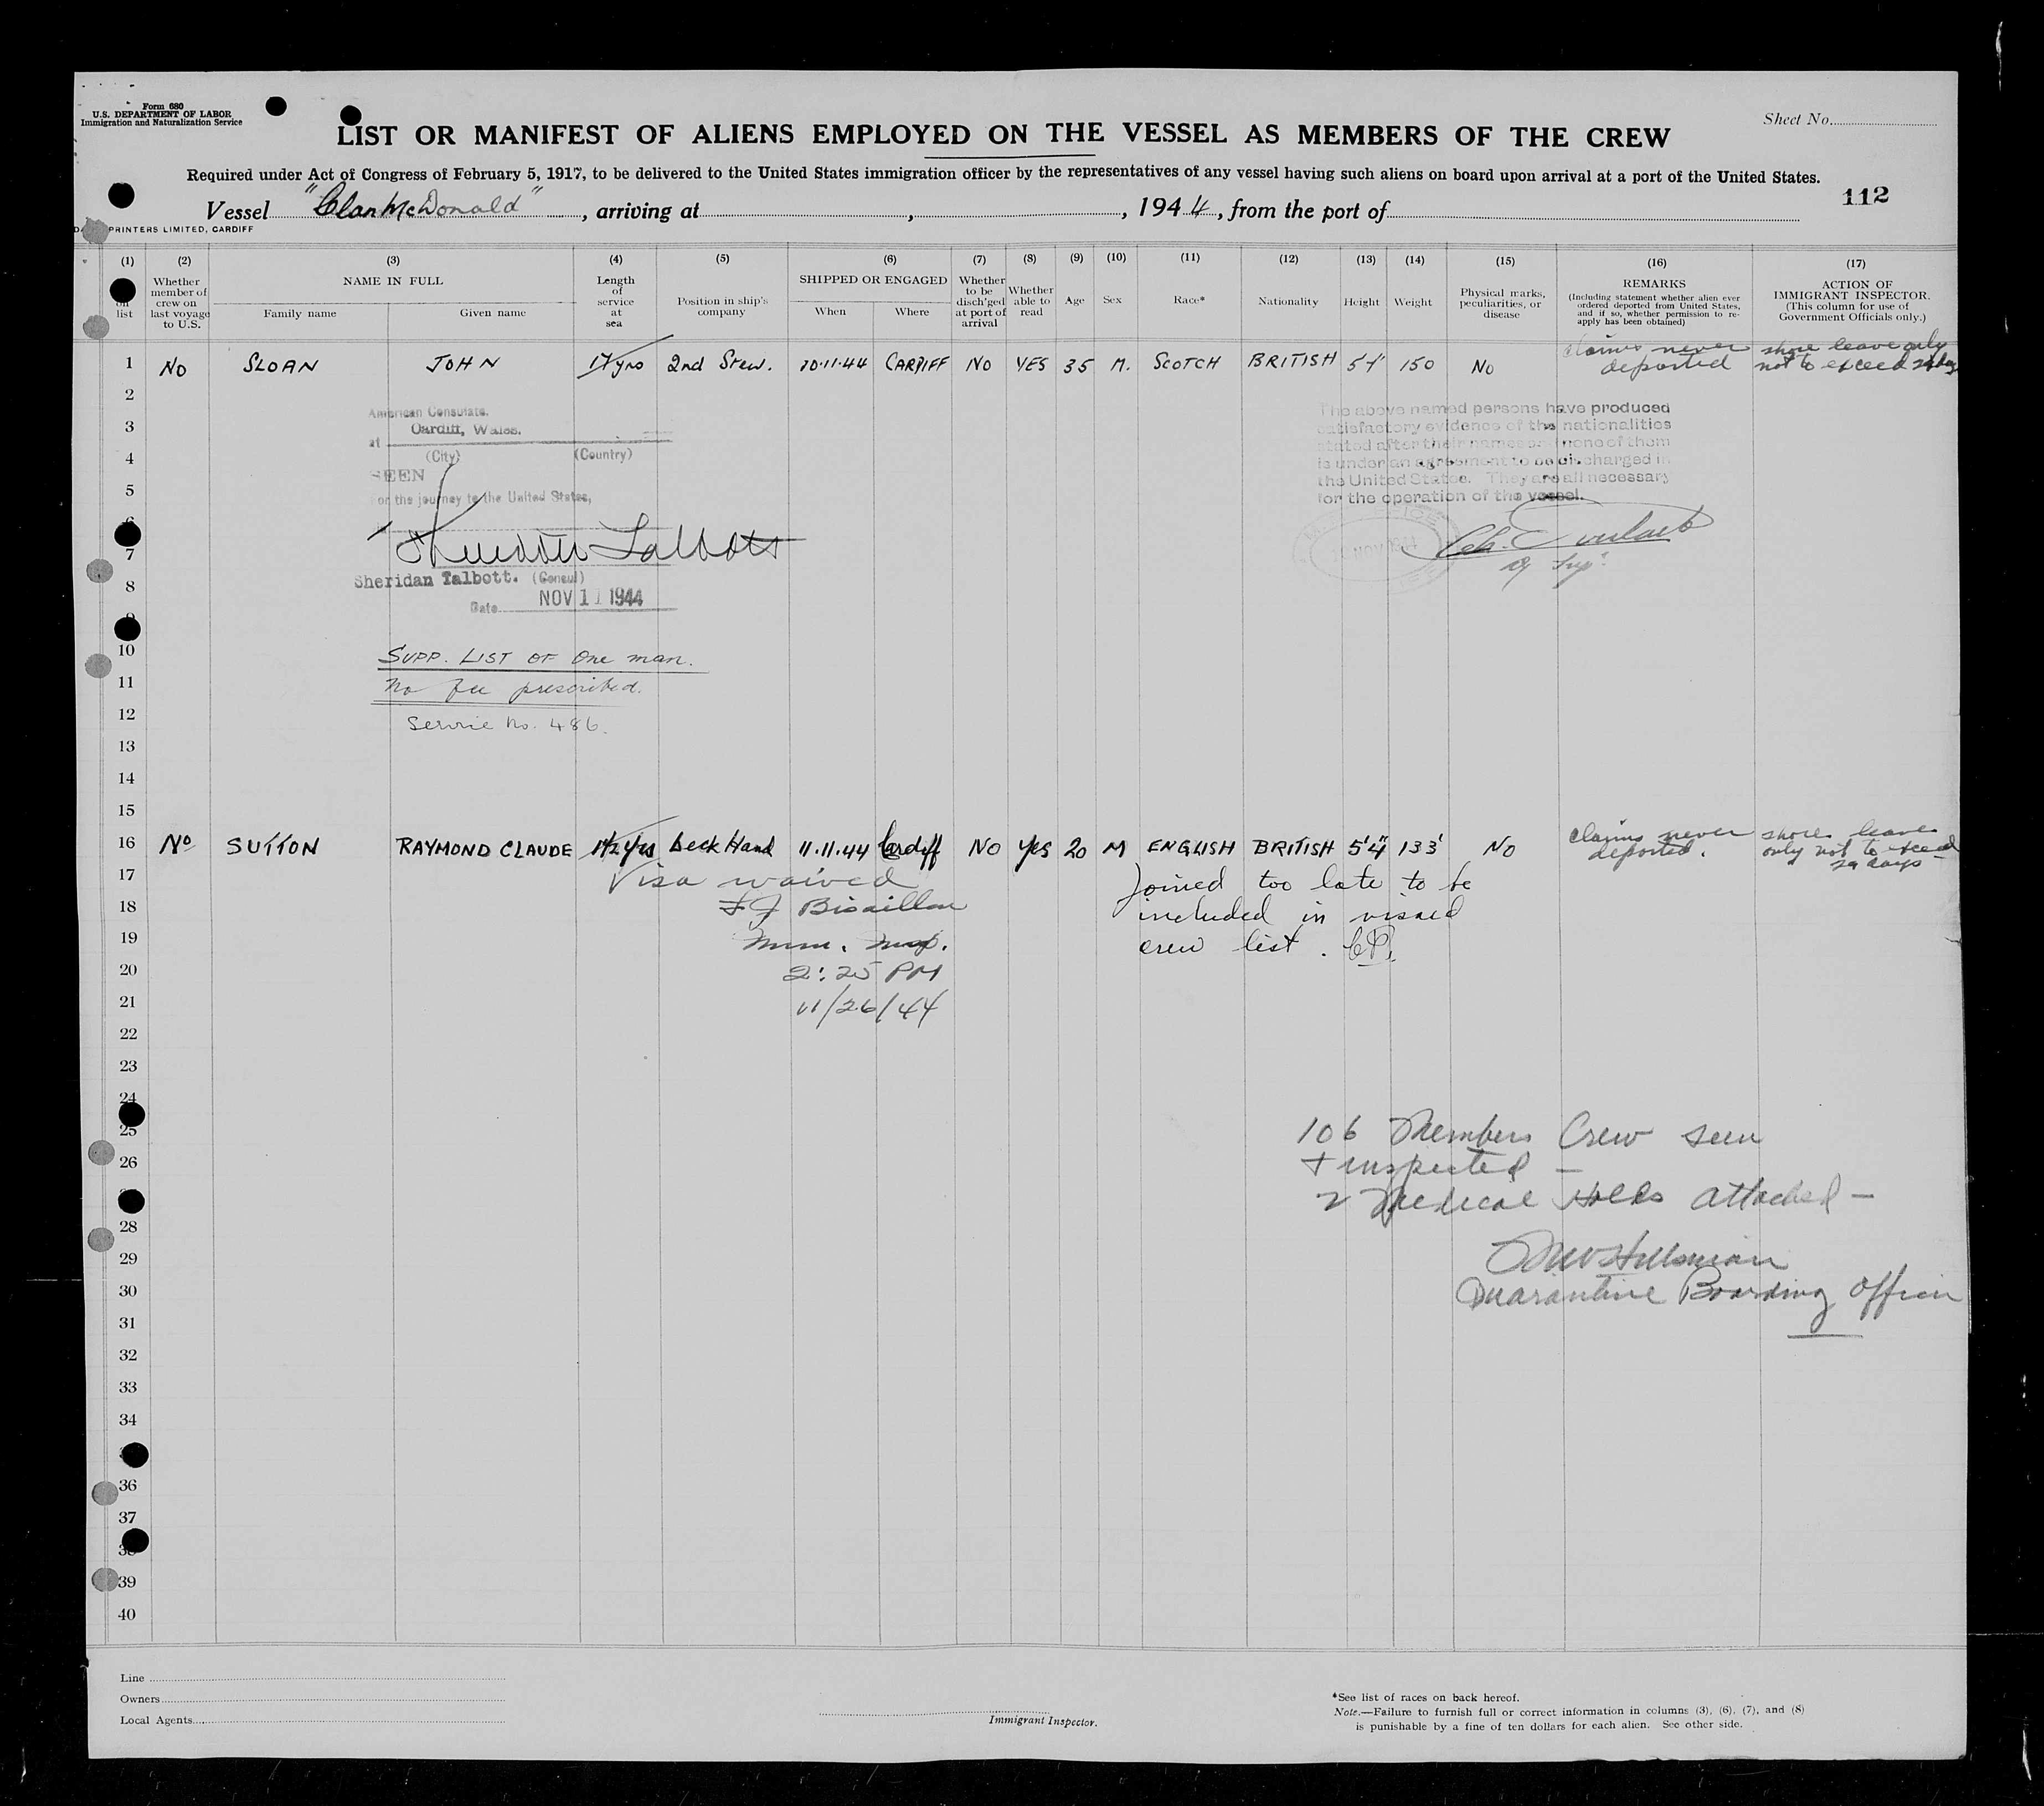 Form 680
U.S. DEPARTMENT OF LABOR
Immigration and Naturalization Service
Sheet No.
LIST OR MANIFEST OF ALIENS EMPLOYED ON THE VESSEL AS MEMBERS OF THE CREW
Required under Act of Congress of February 5, 1917, to be delivered to the United States immigration officer by the representatives of any vessel having such aliens on board upon arrival at a port of the United States.
112
Vessel "Clan McDonald", arriving at , , 1944, from the port of
PRINTERS LIMITED, CARDIFF
(1) (2) (3) (4) (5) (6) (7) (8) (9) (10) (11) (12) (13) (14) (15) (16) (17)
on list
Whether member of crew on last voyage to U.S.
NAME IN FULL
Family name
Given name
Length of service at sea
Position in ship's company
SHIPPED OR ENGAGED
When
Where
Whether to be disch'ged at port of arrival
Whether able to read
Age
Sex
Race*
Nationality
Height
Weight
Physical marks, peculiarities, or disease
REMARKS
(Including statement whether alien ever ordered deported from United States, and if so, whether permission to re-apply has been obtained)
ACTION OF IMMIGRANT INSPECTOR.
(This column for use of Government Officials only.)
1 No SLOAN JOHN 17 yrs 2nd Stew. 10.11.44 CARDIFF NO YES 35 M. SCOTCH BRITISH 150 No claims never deported shore leave only not to exceed 29 days
2
3
4
5
7
8
10
11
12
13
14
15
American Consulate.
Cardiff, Wales.
at
(City) (Country)
SEEN
for the journey to the United States,
Sheridan Talbott
Sheridan Talbott. (Consul)
Date NOV 11 1944
SUPP. LIST OF One man.
No fee prescribed.
Service No. 486.
The above named persons have produced
satisfactory evidence of the nationalities
stated after their names & none of them
is under an agreement to be discharged in
the United States. They are all necessary
for the operation of the vessel.
NOV 1944
16 No SUTTON RAYMOND CLAUDE 1½ yrs Deck Hand 11.11.44 Cardiff NO Yes 20 M ENGLISH BRITISH 5'4" 133 NO claims never deported. shore leave only not to exceed 29 days
17
18
19
20
21
22
23
24
25
26
28
29
30
31
32
33
34
36
37
38
39
40
Visa waived
F J Bisaillon
Imm. Insp.
2:25 PM
11/26/44
Joined too late to be
included in visaed
crew list. CP.
106 Members Crew seen
+ inspected —
2 Medical Holds attached —
Quarantine Boarding Officer
Line
Owners
Local Agents
Immigrant Inspector.
*See list of races on back hereof.
Note.—Failure to furnish full or correct information in columns (3), (6), (7), and (8)
is punishable by a fine of ten dollars for each alien. See other side.